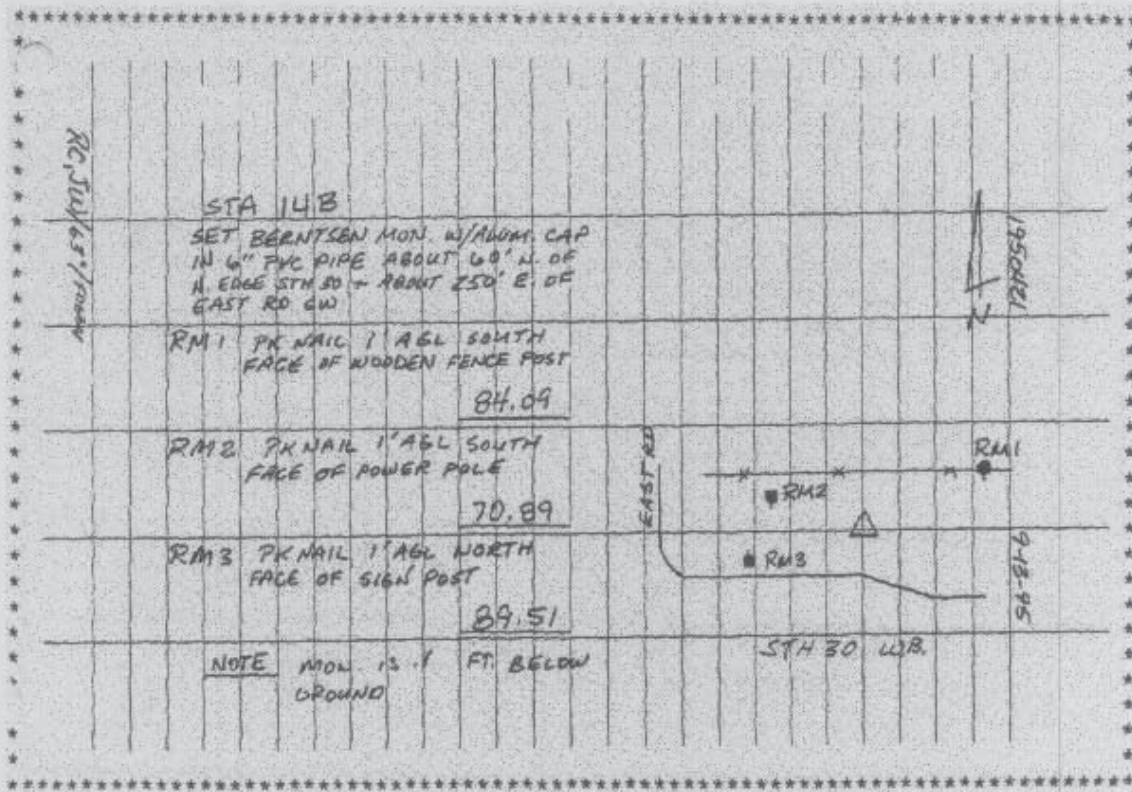 STA 14B
SET BERNTSEN MON. W/ALUM. CAP
IN 6" PVC PIPE ABOUT 60' N. OF
N. EDGE STH 30 + ABOUT 250' E. OF
EAST RD
RM1 PK NAIL 1' AGL SOUTH
FACE OF WOODEN FENCE POST
84.09
RM2 PK NAIL 1' AGL SOUTH
FACE OF POWER POLE
70.89
RM3 PK NAIL 1' AGL NORTH
FACE OF SIGN POST
89.51
NOTE MON. IS .1 FT. BELOW
GROUND
N
EAST RD
RM1
RM2
RM3
STH 30 W.B.